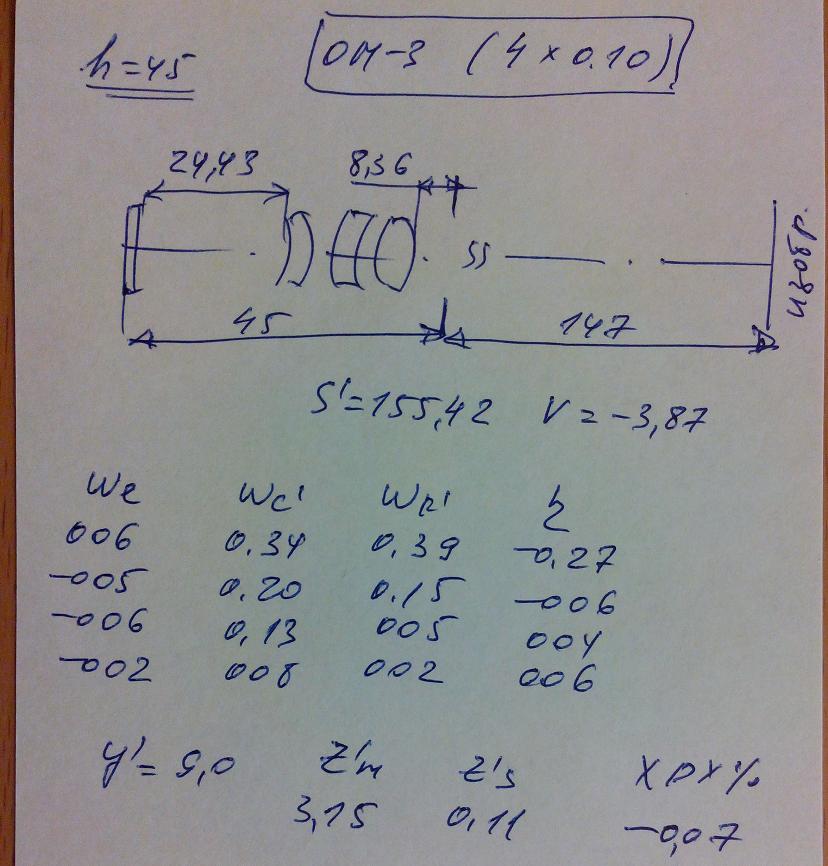 h=45
ОМ-3 (4×0.10)
24,43 8,36
SS
45 147
изобр.
S'=155,42 V=-3,87
We Wc' WF' η
006 0.34 0.39 -0,27
-005 0.20 0.15 -006
-006 0,13 005 004
-002 008 002 006
y'=9,0 Z'm Z's ХРХ%
3,15 0,11 -0,07